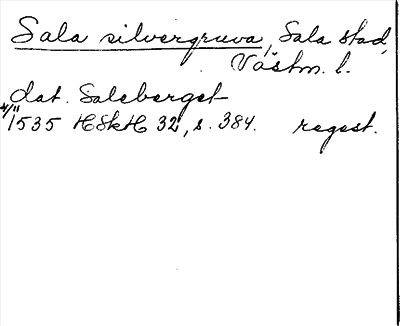 Sala silvergruva, Sala stad,
Västm. l.
dat. Saleberget
4/11 1535 HSkH 32, s. 384. regest.